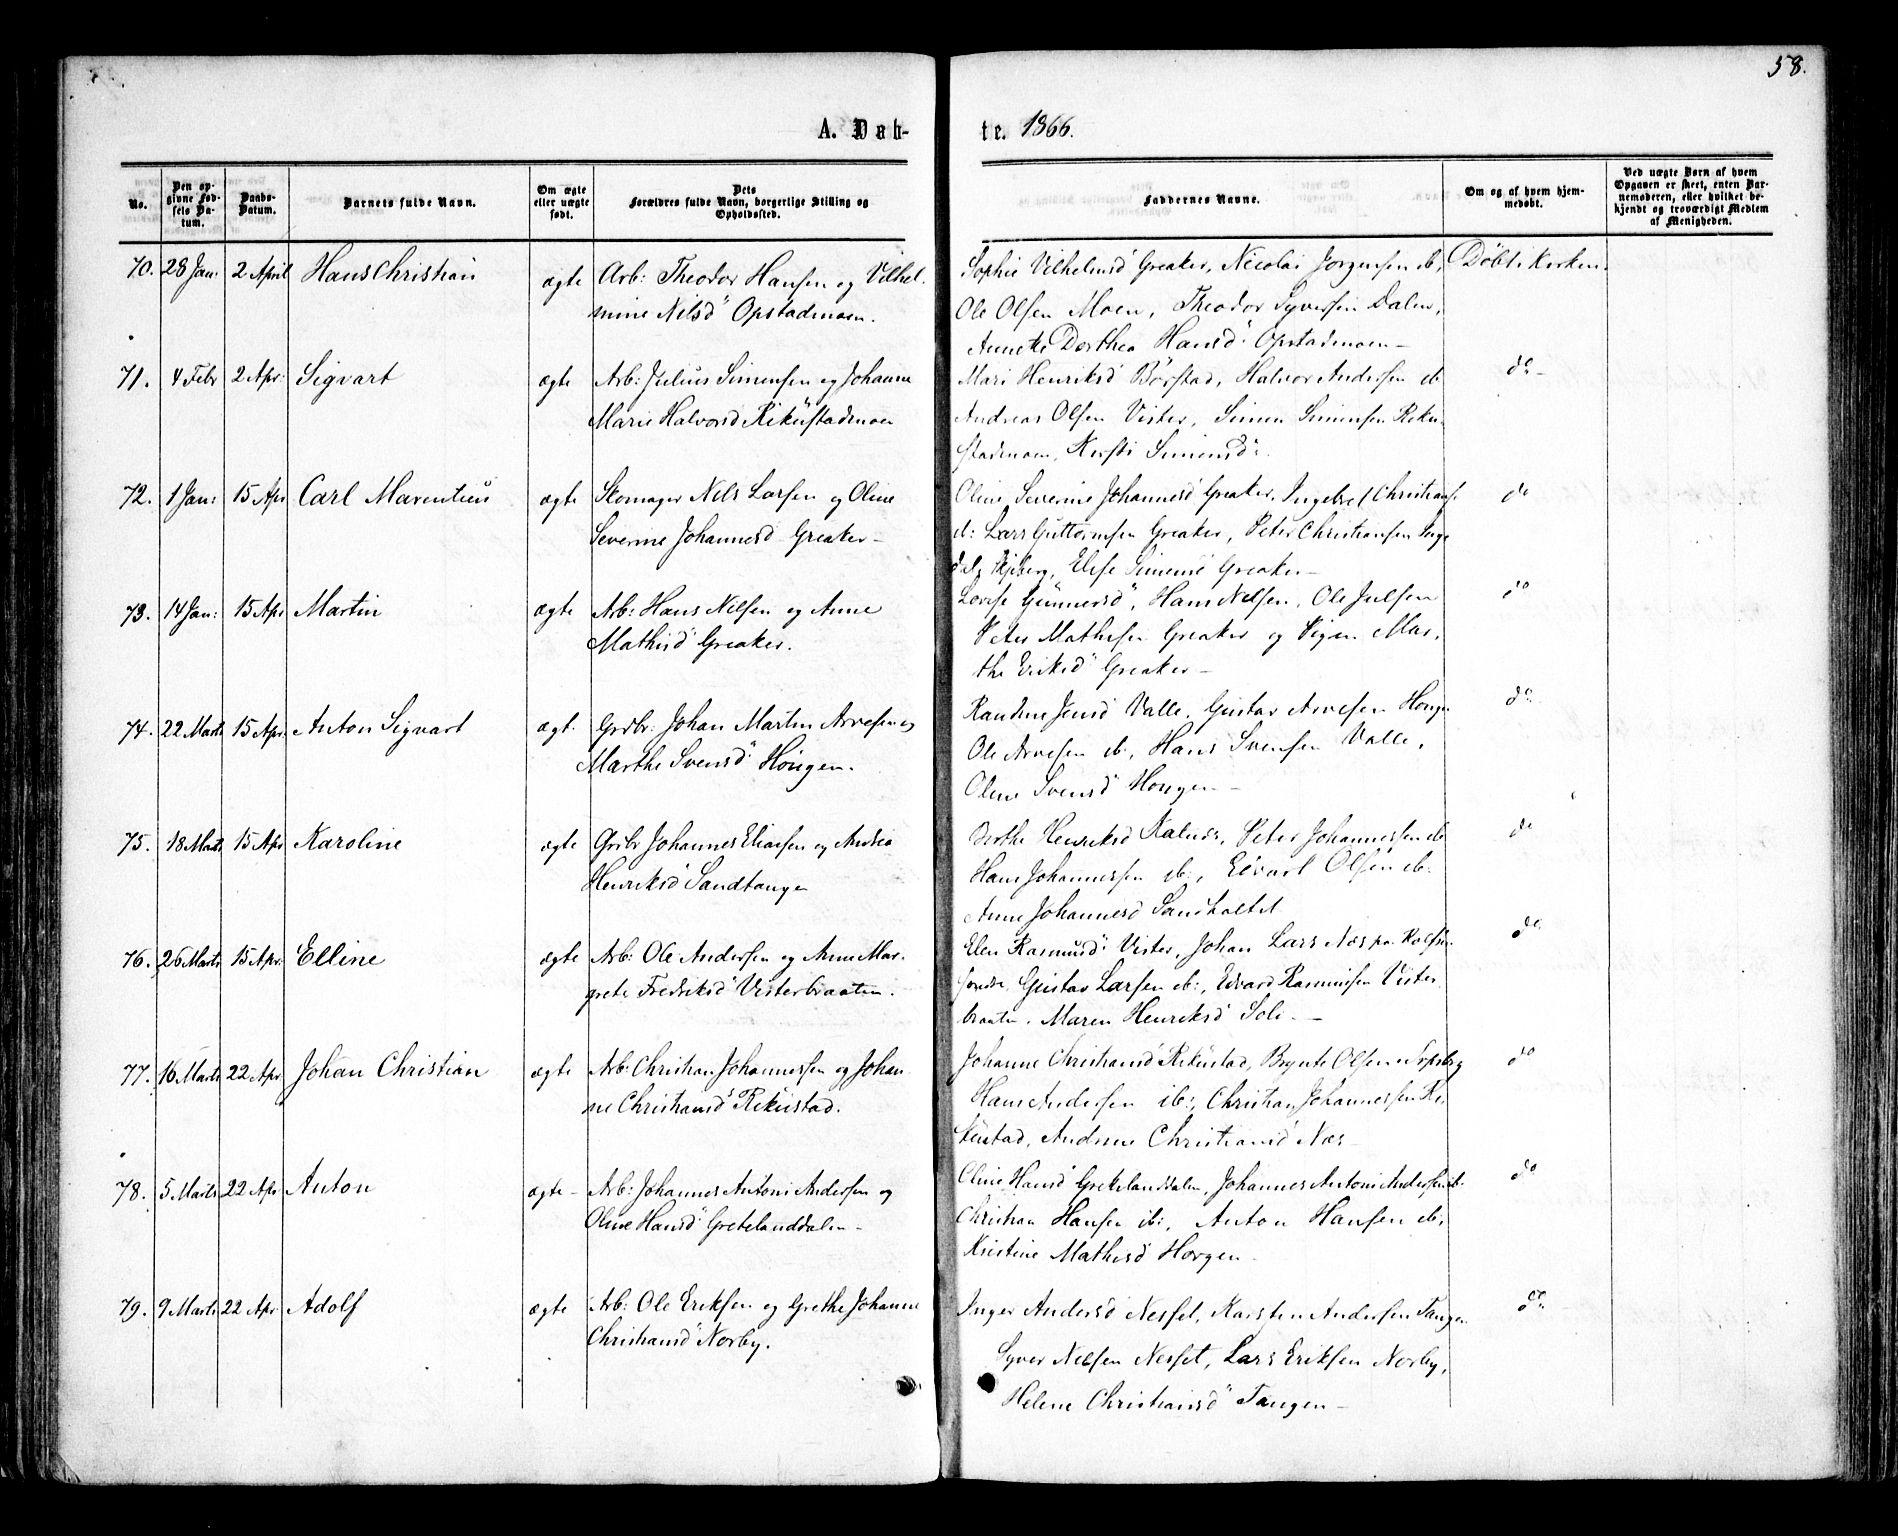 58.
A. Døb-
te. 1866.
No.
Den op-
givne Fød-
sels Da-
tum.
Daabs-
Datum.
Barnets fulde Navn.
Om ægte
eller uægte
født.
Dets
Forældres fulde Navn, borgerlige Stilling og
Opholdssted.
Faddernes Navne.
Om og af hvem hjem-
medøbt.
Ved uægte Børn af hvem
Opgaven er skeet, enten Bar-
nemoderen, eller hvilket be-
kjendt og troværdigt Medlem
af Menigheden.
70. 28 Jan: 2 April Hans Christian ægte Arb: Theodor Hansen og Vilhel-
mine Nilsd" Opstadmoen.
Sophie Vilhelmsd Greaker, Nicolai Jørgensen ib, Døbt i Kirken.
Ole Olsen Moen, Theodor Syversen Dalen,
Annete Dorthea Hansd" Opstadmoen —
71. 4 Febr 2 Apr: Sigvart ægte Arb: Julius Simensen og Johanne
Marie Halvorsd Rikustadmoen
Mari Henriksd Børstad, Halvor Andersen ib do —
Andreas Olsen Vister, Simen Simensen Reku-
stadmoen, Kirsti Simensd".
72. 1 Jan: 15 Apr Carl Marentius ægte Skomager Nils Larsen og Oline
Severine Johannesd Greaker —
Oline Severine Johannesd Greaker, Ingebret Christians. do
ib: Lars Guttormsen Greaker, Peter Christiansen Inge
dal, Elise Simensd Greaker —
73. 14 Jan: 15 Apr Martin ægte Arb: Hans Nilsen og Anne
Mathisd" Greaker.
Lovise Gunnersd", Hans Nilsen, Ole Julsen do
Peter Mathisen Greaker og Pigen Mar-
the Eriksd" Greaker —
74. 22 Marts 15 Apr. Anton Sigvart ægt. Grdbr: Johan Martin Arvesen og
Marthe Svensd" Hougen.
Randine Jensd Valle, Gustav Arvesen Hougen do
Ole Arvesen ib, Hans Svensen Valle,
Oline Svensd" Hougen —
75. 18 Marts 15 Apr Karoline ægte Grdbr Johannes Eliasen og Andrea
Henriksd" Sandtangen
Berthe Henriksd Kalnæs, Peter Johannessen ib do
Hans Johannessen ib:, Edvart Olsen ib:
Anne Johannesd Sandholtet
76. 26 Marts 15 Apr. Elline ægte Arb: Ole Andersen og Anne Mar-
grete Fredriksd Visterbraaten.
Elen Rasmusd" Vister, Johan Lars Næs pa Rolfsø- do
Gustav Larsen ib:, Edvard Rasmusen Vister
braaten, Maren Henriksd Soli. —
77. 16 Marts 22 Apr Johan Christian ægte Arb: Christian Johannessen og Johan
ne Christiansd" Rikustad.
Johanne Christiansd Rikustad, Brynte Olsen do
Hans Andersen ib:, Christian Johannessen Ri-
kustad, Andrine Christiansd Næs —
78. 5 Marts 22 Apr Anton ægte — Arb: Johannes Antoni Andersen og
Oline Hansd" Gretelanddalen —
Oline Hansd Gretelanddalen, Johannes Antoni Andersen ib. do
Christian Hansen ib:, Anton Hansen ib,
Kristine Mathisd Horgen
79. 9 Marts 22 Apr Adolf ægte Arb: Ole Eriksen og Grethe Johanne
Christiansd" Norby.
Inger Andersd Nesset, Karsten Andersen Tangen do
Syver Nilsen Nesset, Lars Eriksen Norby,
Helene Christiansd" Tangen —